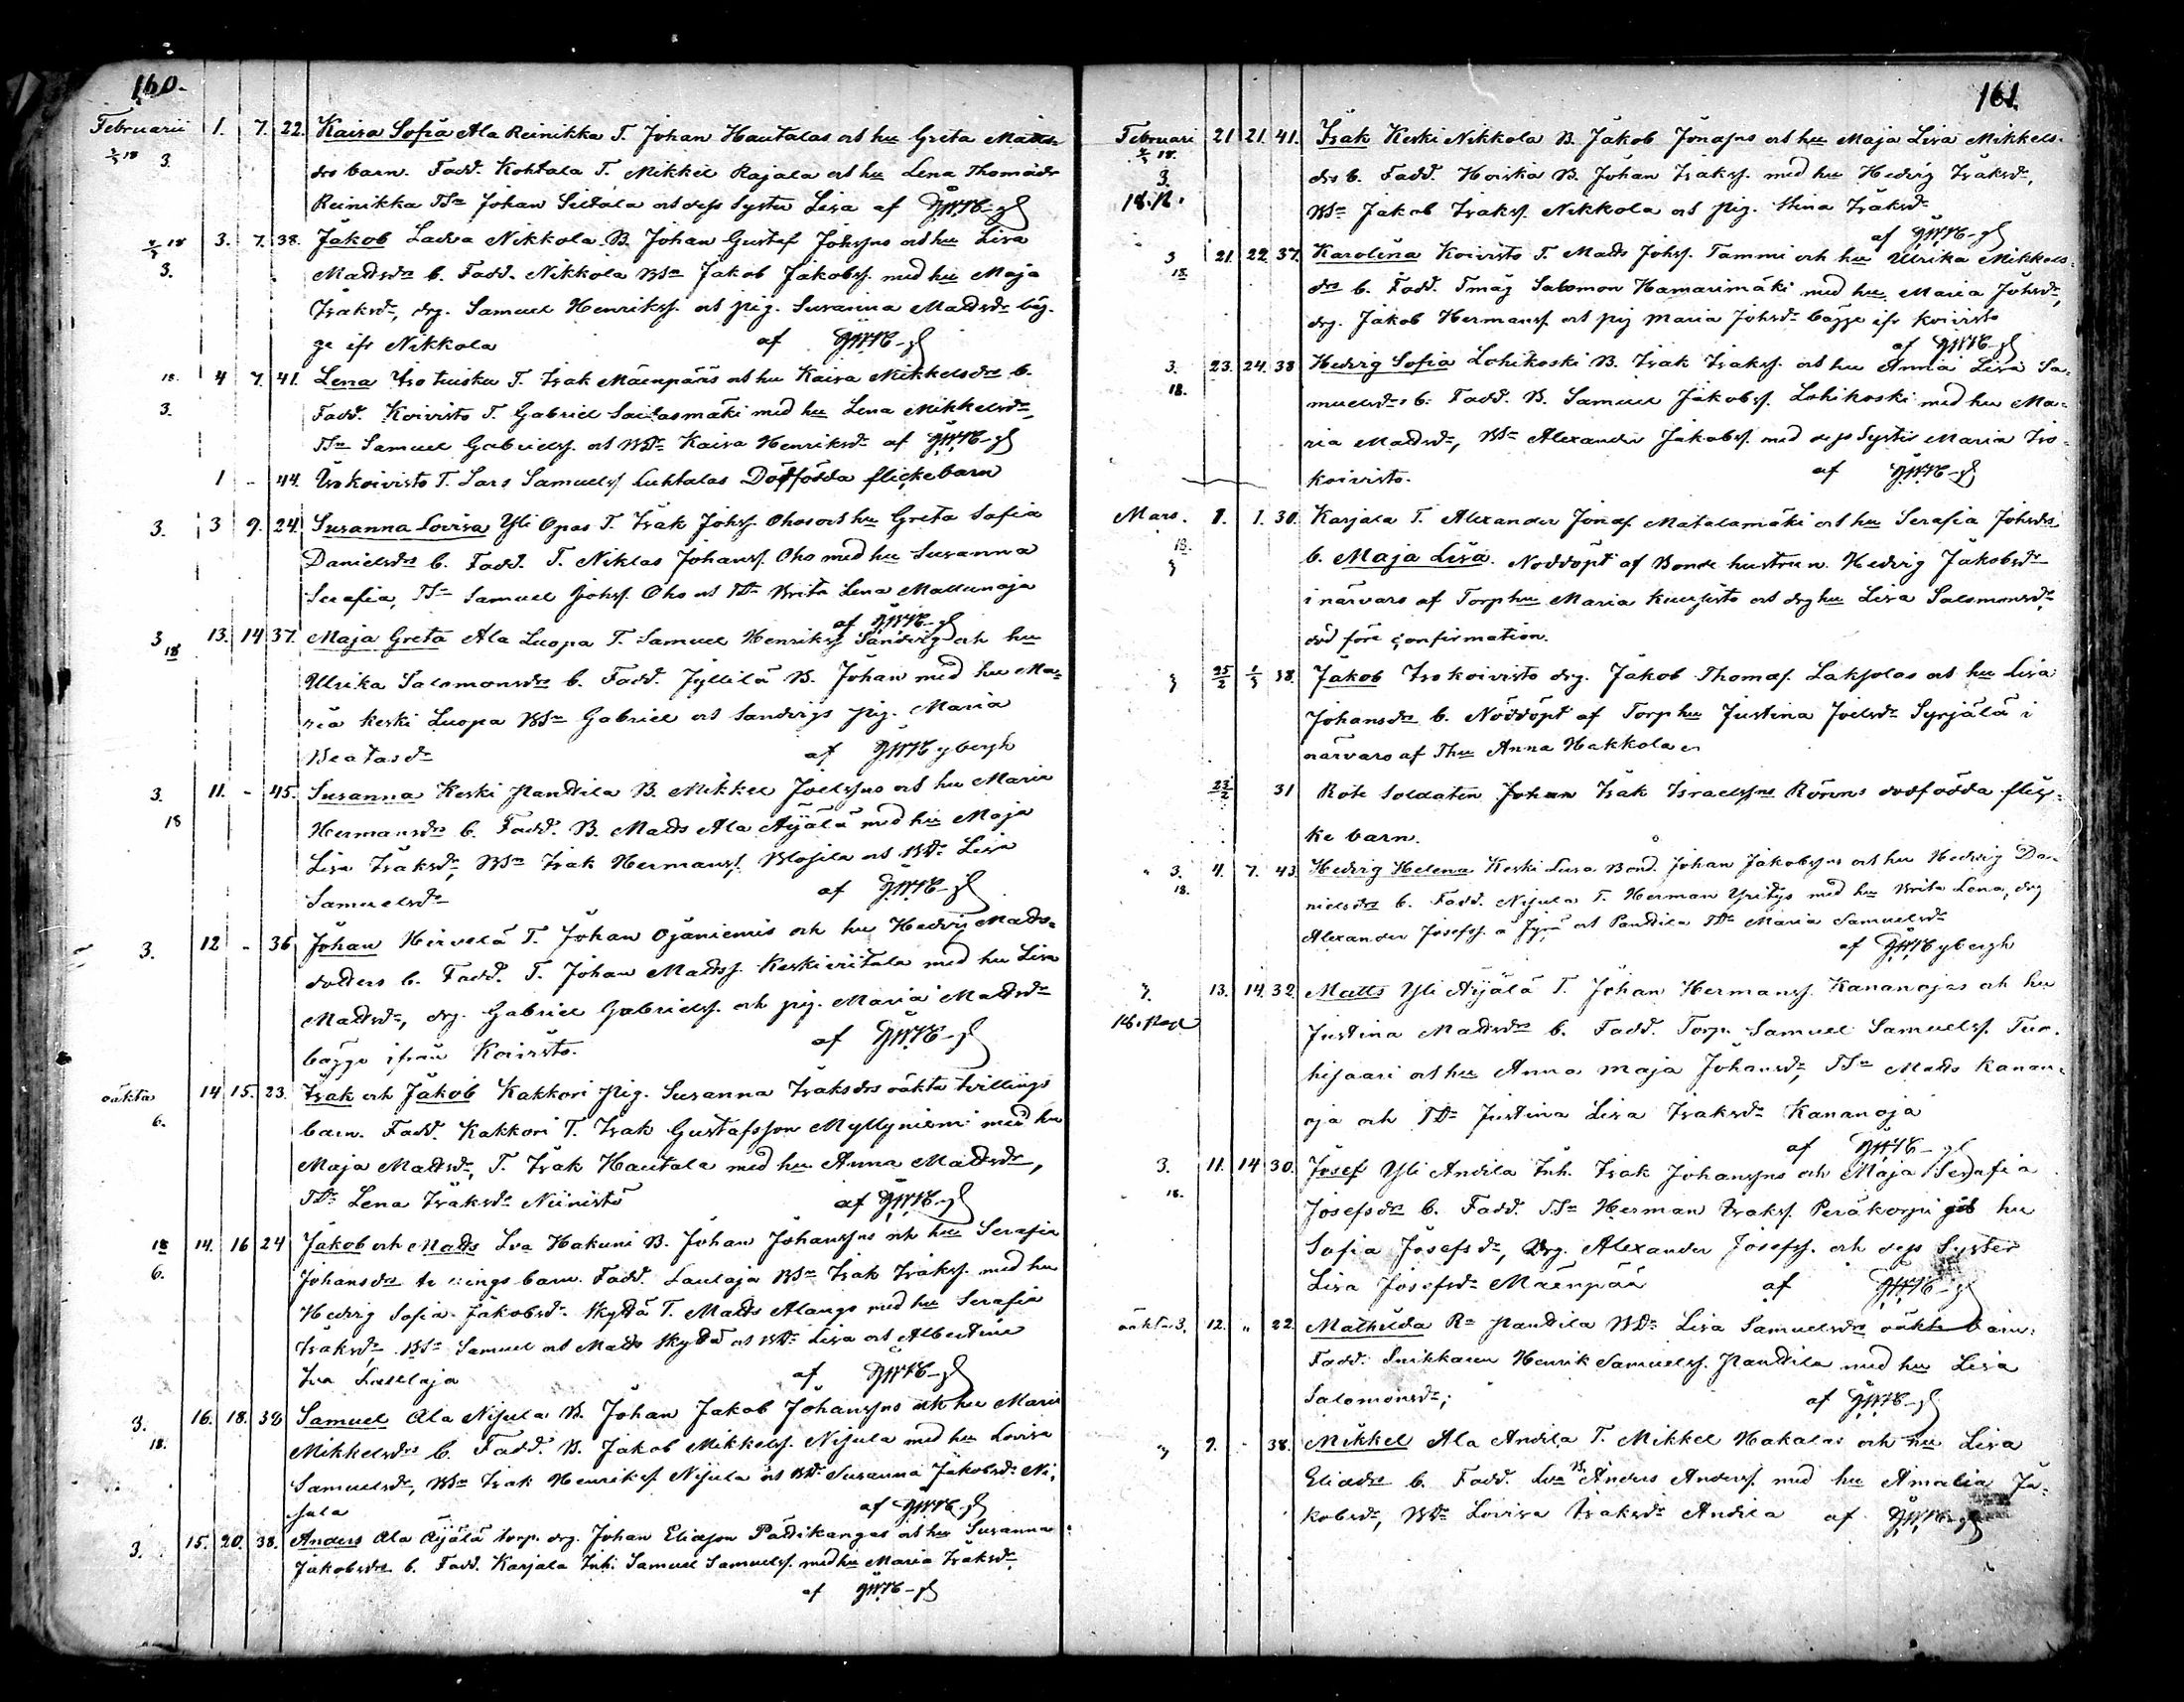 160.
Februarii 1. 7. 22. Kaisa Sofia Ala Reinikka T. Johan Hautalas och hu Greta Matts-
3. drs barn. Fadd. Kohtala T. Mikkel Rajala och hu Lena Thomädr
Reinikka TSn Johan Seitola och dess Syster Lisa af
3. 7. 38. Jakob Ladva Nikkola B. Johan Gustaf Johssns och hu Lisa
3. Mattsdrs b. Fadd. Nikkola BSn Jakob Jakobss. med hu Maja
Isaksdr, drg. Samuel Henrikss. och pig. Susanna Mattsdr bäg-
ge ifr Nikkola af
18. 4 7. 41. Lena Iso tuisku T. Isak Mäenpääs och hu Kaisa Mikkelsdrs b.
3. Fadd. Koivisto T. Gabriel Sailasmäki med hu Lena Mikkelsdr,
TSn Samuel Gabrielss. och BDr Kaisa Henriksdr af
1 - 44. Isokoivisto T. Lars Samuelss Luhtalas Dödfödda flickebarn
3. 3 9. 24. Susanna Lovisa Yli Opas T. Isak Johss. Ohos och hu Greta Sofia
Danielsdrs b. Fadd. T. Niklas Johanss. Oho med hu Susanna
Serafia, TSn Samuel Johss. Oho och TDr Brita Lena Mallunoja
af
3 18 13. 14 37. Maja Greta Ala Luopa T. Samuel Henrikss Sandvig och hu
Ullrika Salomonsdrs b. Fadd. Jyllilä B. Johan med hu Ma-
ria Keski Luopa BSn Gabriel och Sandvigs pig. Maria
Beatasdr af
3. 11. - 45. Susanna Keski Panttila B. Mikkel Joelssns och hu Maria
18 Hermansdrs b. Fadd. B. Matts Ala Äijälä med hu Maja
Lisa Isaksdr, BSn Isak Hermanss. och BDr Lisa
Samuelsdr af
3. 12 - 36 Johan Hirvelä T. Johan Ojaniemis och hu Hedvig Matts-
dotters b. Fadd. T. Johan Mattss. Keskiviitala med hu Lisa
Mattsdr, drg. Gabriel Gabrielss. och pig. Maria Mattsdr
bägge ifrån Koivisto. af
oäkta 14 15. 23. Isak och Jakob Kakkori pig. Susanna Isaksdrs oäkta tvillings
6. barn. Fadd. Kakkori T. Isak Gustafsson Myllyniemi med hu
Maja Mattsdr, T. Isak Hautala med hu Anna Mattsdr,
TDr Lena Isaksdr Niinistö af
18 14. 16 24 Jakob och Matts Lva Hakuni B. Johan Johanssns och hu Serafia
6. Johansdrs barn. Fadd. Laulaja BSn Isak Isakss. med hu
Hedvig Sofia Jakobsdr. Skyttä T. Matts Alango med hu Serafia
Isaksdr, BSn Samuel och Matts Skyttä och BDr Lisa och Albertina
Lva Laulaja af
3. 18. 16. 18. 38 Samuel Ala Nisula B. Johan Jakob Johanssns och hu Maria
Mikkelsdrs b. Fadd. B. Jakob Mikkelss. Nisula med hu Lovisa
Samuelsdr, BSn Isak Henrikss Nisula och BDr Susanna Jakobsdr Ni-
sula af
3. 15. 20. 38. Anders Ala Äijälä torp. drg. Johan Eliasson Pättikangas och hu Susanna
Jakobsdrs b. Fadd. Karjala Inh. Samuel Samuelss. med hu Maria Isaksdr.
af
161.
Februari 21 21. 41. Isak Keski Nikkola B. Jakob Jonassns och hu Maja Lisa Mikkels-
3. drs b. Fadd. Hoiska B. Johan Isakss. med hu Hedvig Isaksdr,
BSn Jakob Isakss. Nikkola och pig. Stina Isaksdr
af
3 18 21. 22. 37. Karolina Koivisto T. Matts Johss. Tammi och hu Ulrika Mikkels-
drs b. Fadd. Smäg Salomon Hamarimäki med hu Maria Johsdr,
drg. Jakob Hermanss. och pig Maria Johsdr bägge ifr Koivisto
af
3. 18. 23. 24. 38 Hedvig Sofia Lohikoski B. Isak Isakss. och hu Anna Lisa Sa-
muelsdrs b. Fadd. B. Samuel Jakobss. Lohikoski med hu Ma-
ria Mattsdr, BSn Alexander Jakobss. med dess Syster Maria Iso-
koivisto. af
Mars. 1. 1. 30. Karjala T. Alexander Jonass. Matalamäki och hu Serafia Johsdrs
18. b. Maja Lisa. Nöddöpt af Bonde hustrun Hedvig Jakobsdr
i närvaro af Torphu Maria och drghu Lisa Salomonsdr,
död före confirmation.
25/2 1/3 38. Jakob Isokoivisto drg. Jakob Thomass. och hu Lisa
Johansdrs b. Nöddöpt af Torphu Justina Joelsdr Syrjälä i
närvaro af Thu Anna Hakkola
23/2 31 Rote Soldaten Johan Isak Israelssns Rörens dödfödda flic-
ke barn.
3. 18. 4. 7. 43. Hedvig Helena Keski Luoa Bond. Johan Jakobssns och hu Hedvig Da-
nielsdrs b. Fadd. Nisula T. Herman Yritys med hu Brita Lena, drg
Alexander Josefss. å Jyrä och Panttila TDr Maria Samuelsdr
af
3. 13. 14. 32. Matts Yli Äijälä T. Johan Hermanss. Kananojas och hu
Justina Mattsdrs b. Fadd. Torp. Samuel Samuelss. Tur-
hisaari och hu Anna Maja Johansdr, TSn Matts Kanan-
oja och TDr Justina Lisa Isaksdr Kananoja
af
3. 18. 11. 14 30. Josef Yli Antila Inh. Isak Johanssns och Maja Serafia
Josefsdrs b. Fadd. TSn Herman Isakss. Peräkorpi och hu
Sofia Josefsdr, Drg. Alexander Josefss. och dess Syster
Lisa Josefsdr Mäenpää af
oäkta 3. 12. " 22. Mathilda Rn Panttila BDr Lisa Samuelsdrs oäkta barn.
Fadd. Snikkaren Henrik Samuelss. Panttila med hu Lisa
Salomonsdr; af
9. - 38. Mikkel Ala Antila T. Mikkel Hakalas och hu Lisa
Eliædrs b. Fadd. Lva B. Anders Anderss. med hu Amalia Ja-
kobsdr, BDr Lovisa Isaksdr Antila af